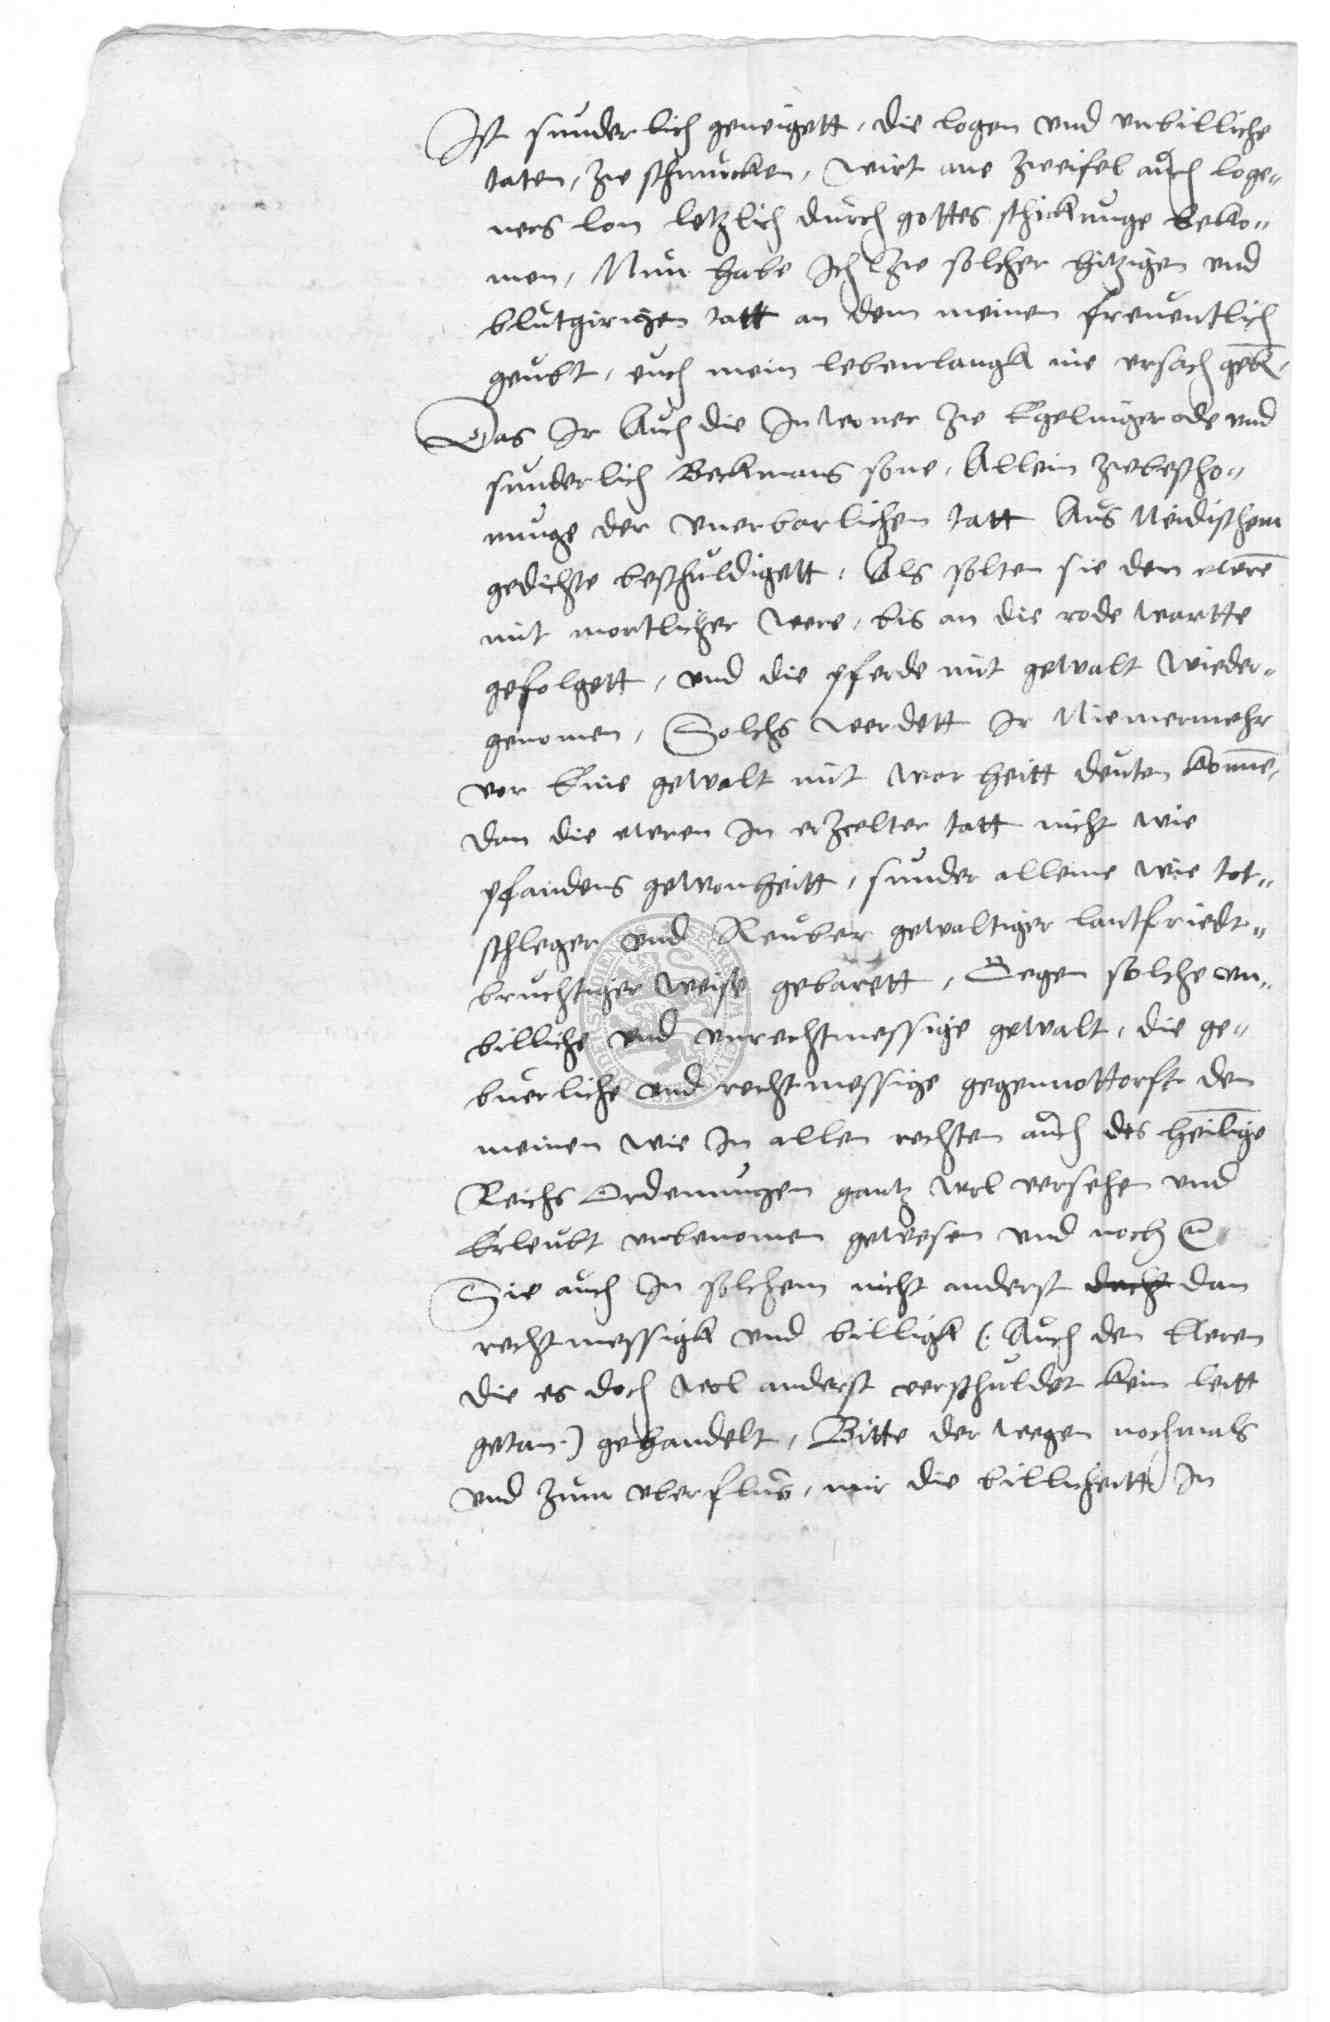 Ist sunderlich geneigett, die logen vnd vnbilliche
taten, zw schmucken, wirt ane zweifel auch loge„
ners lon letzlich durch gottes schickunge beko„
men, Nun habe Ich zw solcher hitzigen vnd
blutgirigen tatt an dem meinen freuentlich
geubt, euch mein lebenlangk nie vrsach geb̄,
Das Ir Auch die Inwoner zw Egelingerode vnd
sunderlich Beckmans sone, Allein zwbescho„
nunge der vnerbarlichen tatt Aus Neidischem
gedichte beschuldigett, Als solten sie den ewrē
mit mortlicher were, bis an die rode wartte
gefolgett, vnd die pferde mit gewalt wieder„
genomen, Solchs werdett Ir Niemermehr
vor Eine gewalt mit warheitt deuten konnē,
dan die ewren In erzcelter tatt nicht wie
pfandens gewonheitt, sunder alleine wie tot„
schleger vnd Reuber gewaltiger lantfriedt„
bruchtiger weise gebarett, Gegen solche vn„
billiche vnd vnrechtmessige gewalt, die ge„
buerliche vnd rechtmessige gegennottorft den
meinen wie In allen rechten auch des heilige
Reichs Ordenungen gantz wol versehen vnd
Erleubt vnbenomen gewesen vnd noch
Sie auch In solchem nicht anderst docht dan
rechtmessigk vnd billigk (: Auch den Ewren
die es doch wol anderst verschuldet kein leitt
getan:) gehandelt, Bitte der wegen nochmals
vnd zum vberflus, mir die billicheitt In